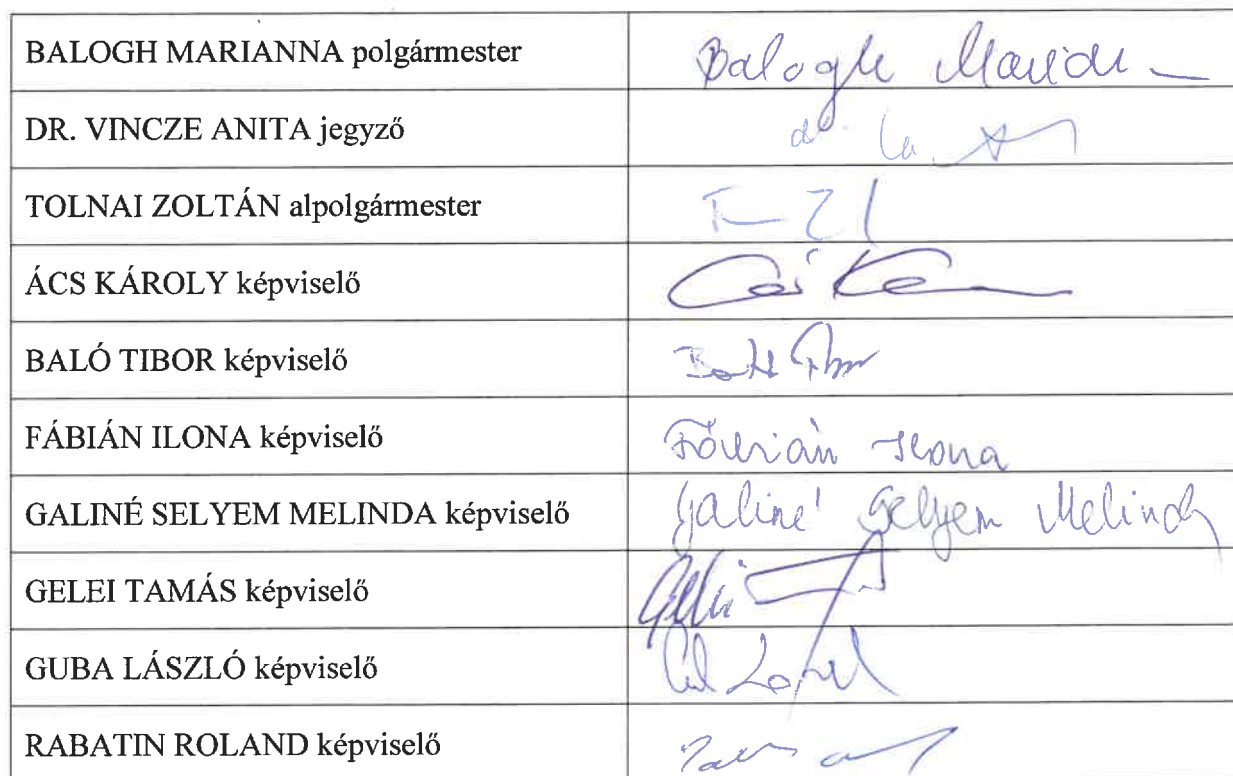 BALOGH MARIANNA polgármester Balogh Mariann
DR. VINCZE ANITA jegyző dr.
TOLNAI ZOLTÁN alpolgármester
ÁCS KÁROLY képviselő
BALÓ TIBOR képviselő
FÁBIÁN ILONA képviselő Fábián Ilona
GALINÉ SELYEM MELINDA képviselő Galiné Selyem Melinda
GELEI TAMÁS képviselő
GUBA LÁSZLÓ képviselő
RABATIN ROLAND képviselő